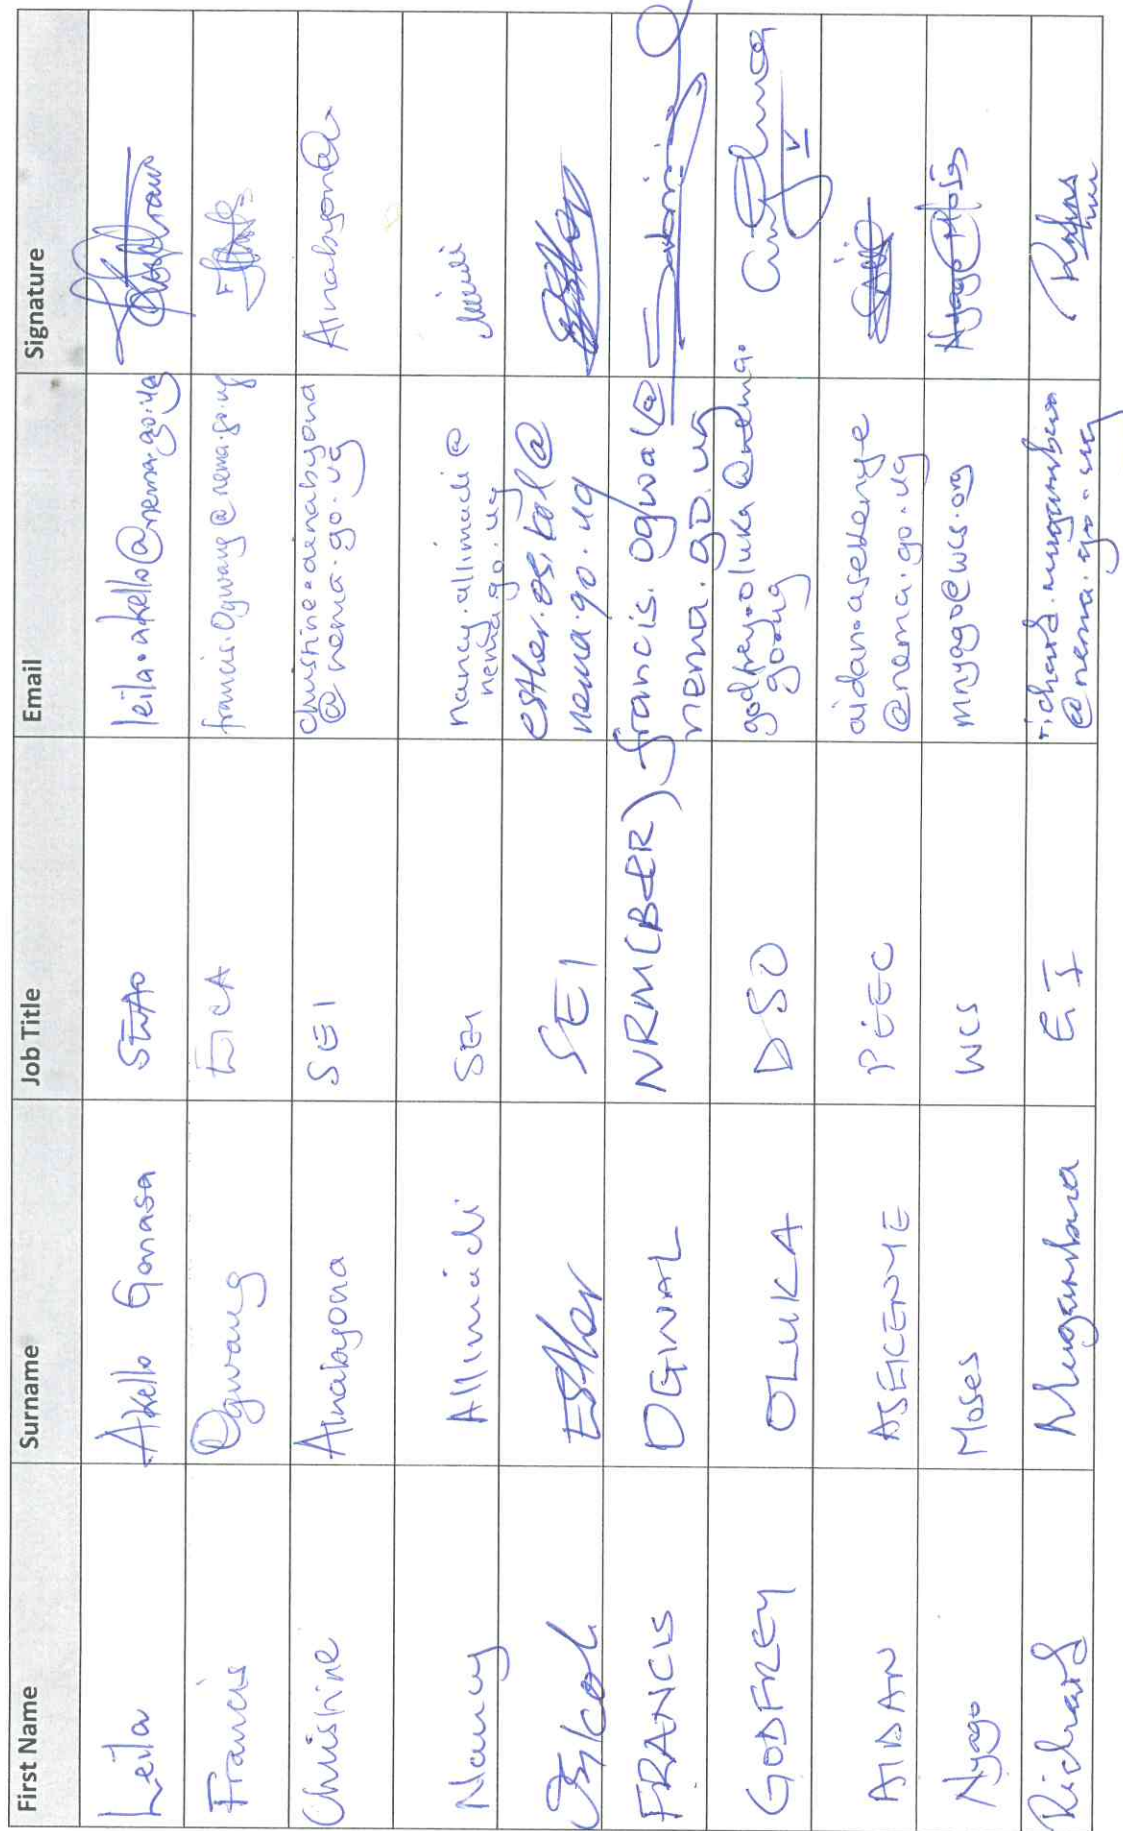 First Name Surname Job Title Email Signature
Leila Akello Gonasa leila.akello@nema.go.ug
Francis Ogwang EICA francis.ogwang@nema.go.ug
Christine Ainabyona SEI christine.ainabyona
@nema.go.ug
Nancy Allimadi SEI nancy.allimadi@
nema.go.ug
Esther SEI esther.osikol@
nema.go.ug
FRANCIS OGWAL NRM(B&R) francis.ogwal@
nema.go.ug
GODFREY OLUKA DSO godfrey.oluka@nema.
go.ug
AIDAN ASEKENYE PEEC aidan.asekenye
@nema.go.ug
Nyago Moses WCS mnyago@wcs.org Nyago Moses
Richard Mugambwa EI richard.mugambwa
@nema.go.ug